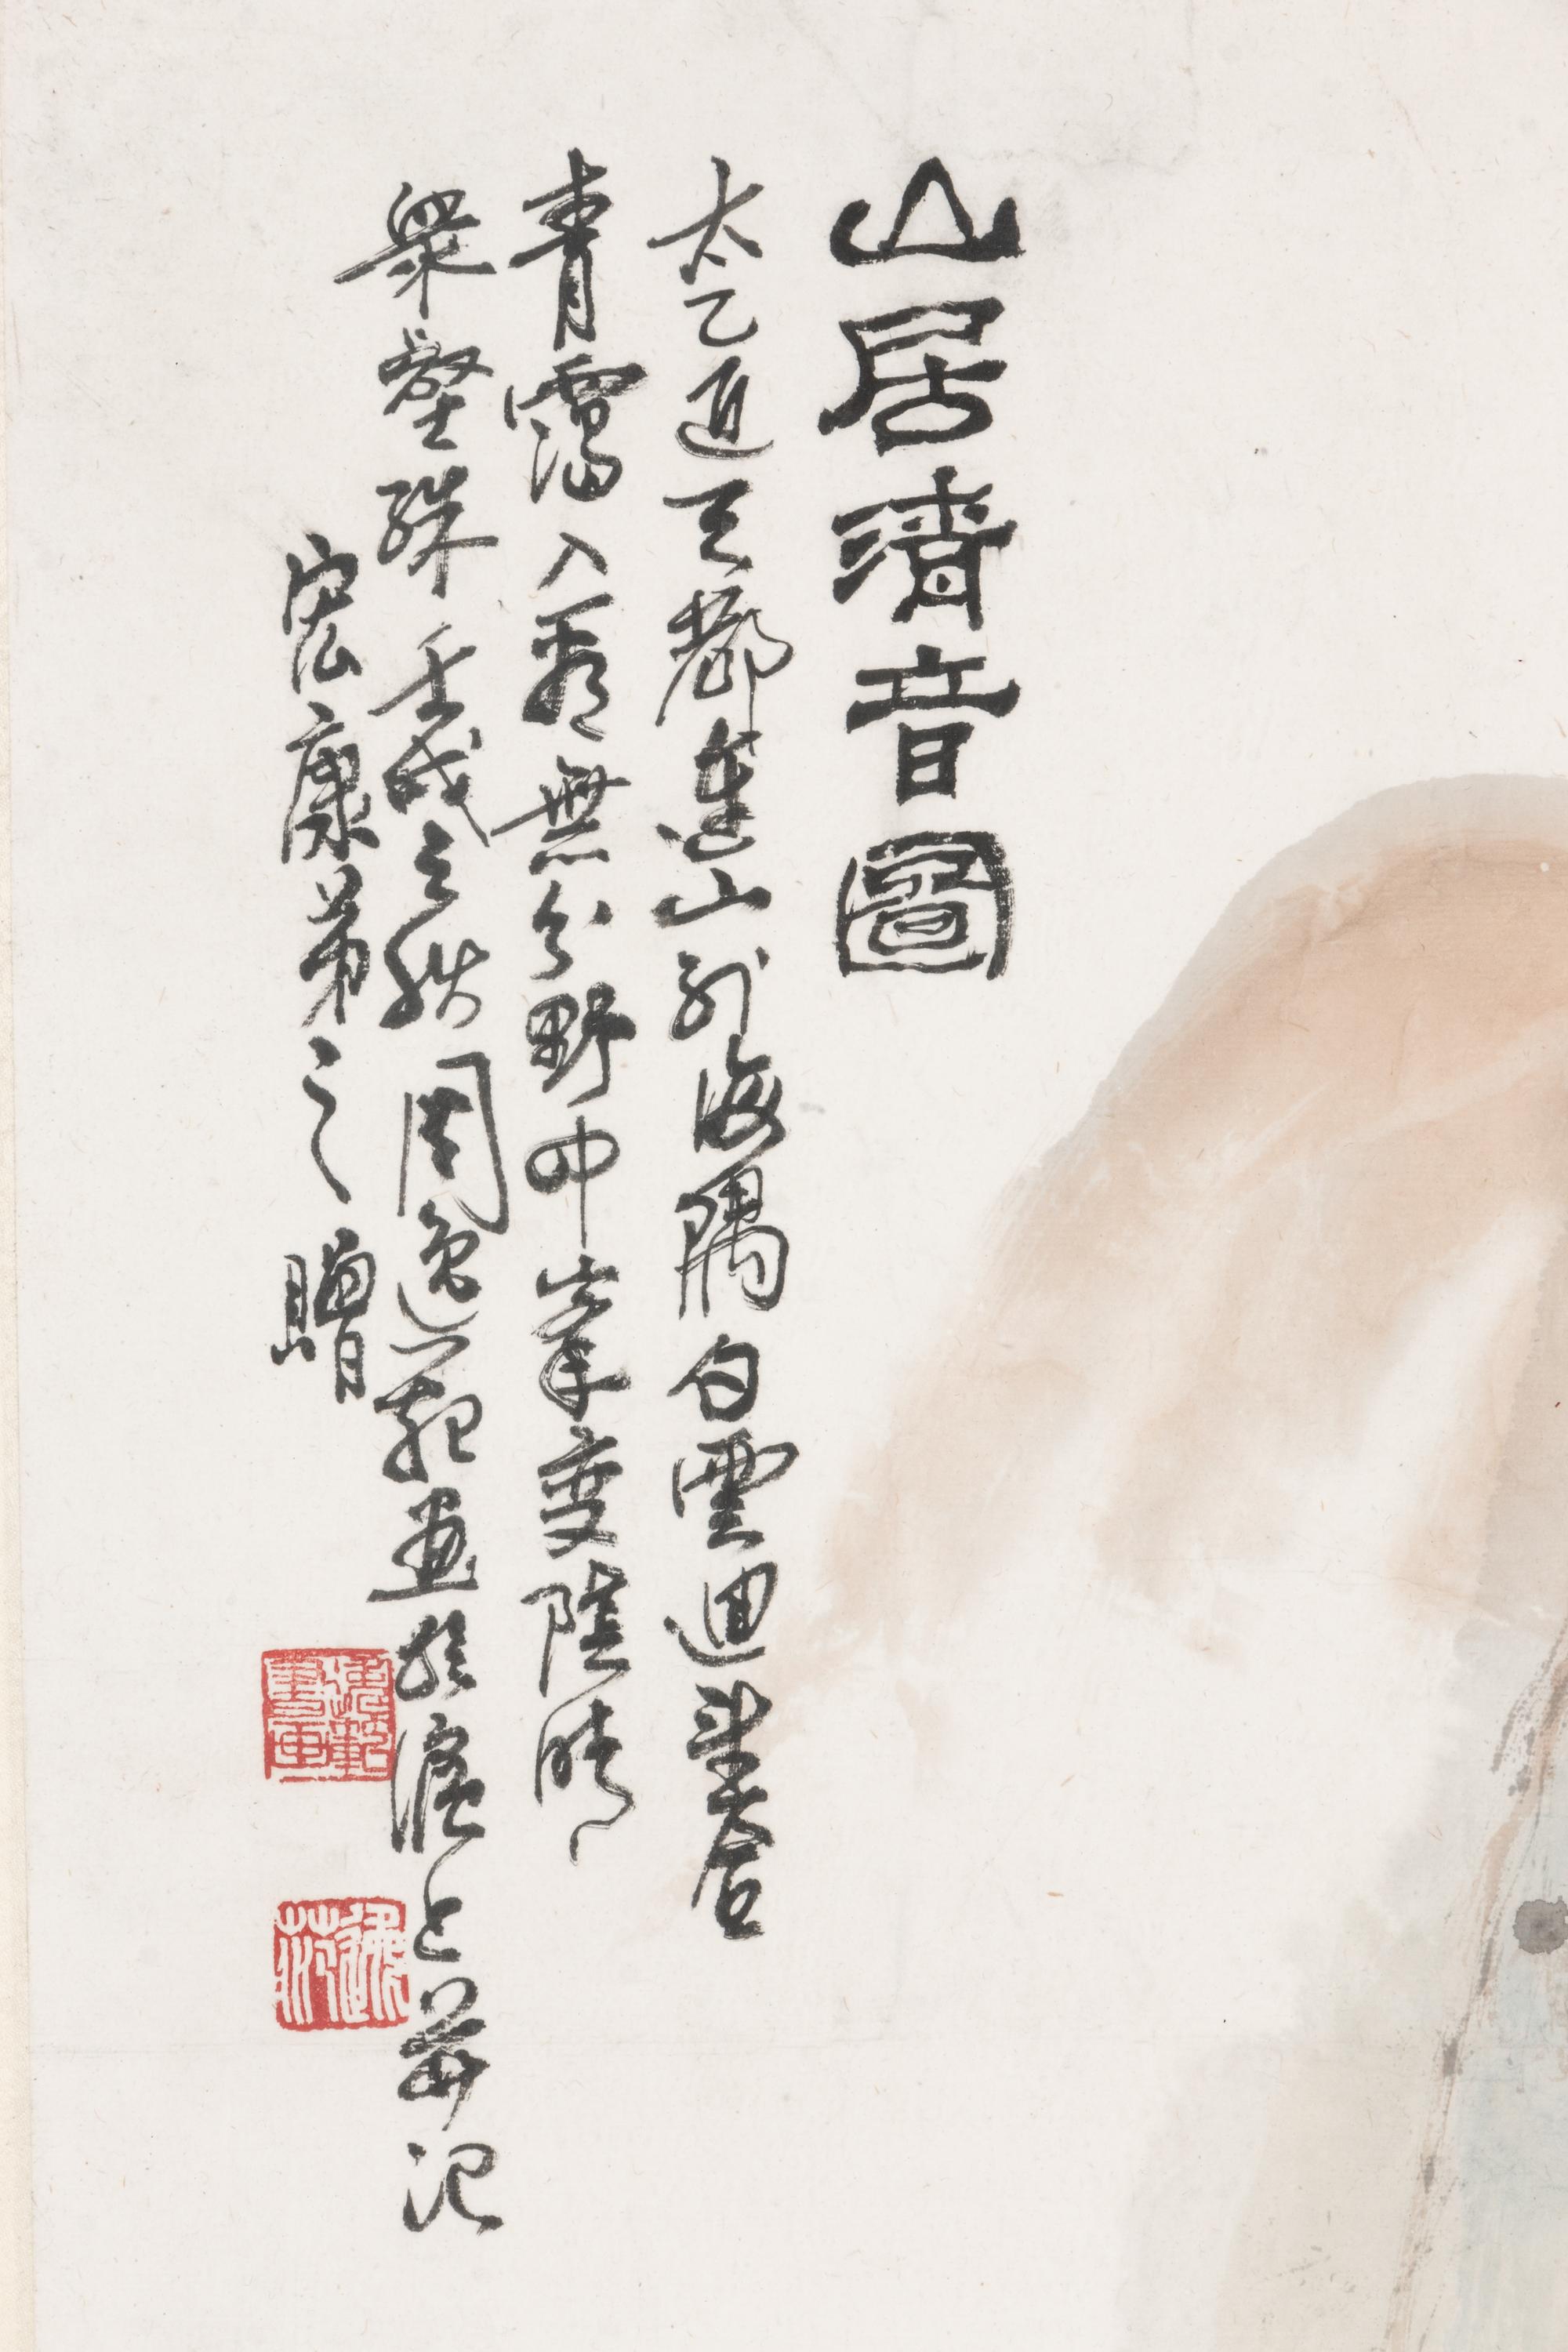 山居清音圖
太乙近天都連山到海隅白雲迴望合
青靄入看無分野中峯變陰晴
衆壑殊 壬戌之秋周逸範畫於滬上並記
宏康弟之贈